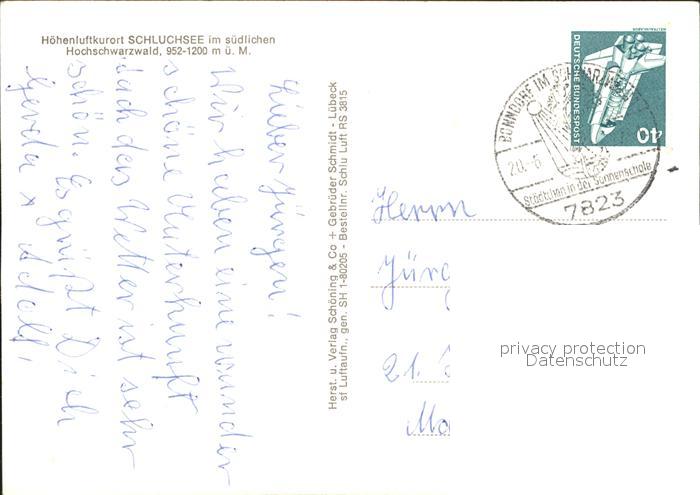 Höhenluftkurort SCHLUCHSEE im südlichen
Hochschwarzwald, 952-1200 m ü. M.
Lieber Jürgen!
Wir haben eine wunder
schöne Unterkunft
auch das Wetter ist sehr
schön. Es grüßt Dich
Gerda + Adolf,
Herst. u. Verlag Schöning & Co + Gebrüder Schmidt - Lübeck
sf Luftaufn., gen. SH 1-80205 - Bestellnr. Schlu Luft RS 3815
DEUTSCHE BUNDESPOST
40
BONNDORF IM SCHWARZWALD
20.-6
Städtchen in der Sonnenschale
7823
Herrn
Jür
21.
Mo
privacy protection
Datenschutz